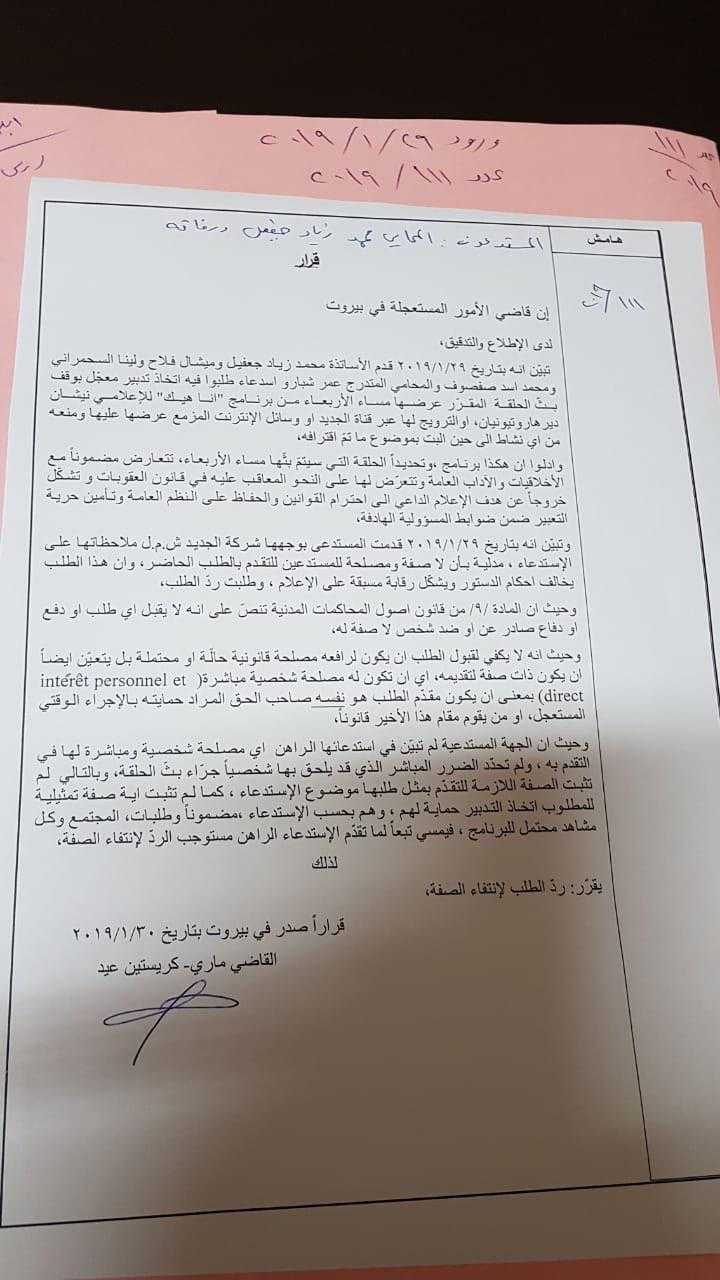 ورود ٢٠١٩/١/٢٩
عدد ١١١/ ٢٠١٩
عدد ١١١
٢٠١٩
هامش
١١١/
المستدعون : المحامي محمد زياد جعفيل ورفاقه
قرار
إن قاضي الأمور المستعجلة في بيروت
لدى الإطلاع والتدقيق،
تبيّن انه بتاريخ ٢٠١٩/١/٢٩ قدم الأساتذة محمد زياد جعفيل وميشال فلاح ولينا السحمراني
ومحمد اسد صفصوف والمحامي المتدرج عمر شبارو إسدعاء طلبوا فيه اتخاذ تدبير معجّل بوقف
بثّ الحلقة المقرّر عرضها مساء الأربعاء من برنامج "انا هيك" للإعلامي نيشان
ديرهاروتيونيان، اوالترويج لها عبر قناة الجديد او وسائل الإنترنت المزمع عرضها عليها ومنعه
من اي نشاط الى حين البت بموضوع ما تمّ اقترافه،
وادلوا ان هكذا برنامج ،وتحديداً الحلقة التي سيتمّ بثّها مساء الأربعاء، تتعارض مضموناً مع
الأخلاقيات والآداب العامة وتتعرّض لها على النحو المعاقب عليه في قانون العقوبات و تشكّل
خروجاً عن هدف الإعلام الداعي الى احترام القوانين والحفاظ على النظم العامة وتأمين حرية
التعبير ضمن ضوابط المسؤولية الهادفة،
وتبيّن انه بتاريخ ٢٠١٩/١/٢٩ قدمت المستدعى بوجهها شركة الجديد ش.م.ل ملاحظاتها على
الإستدعاء ، مدلية بأن لا صفة ومصلحة للمستدعين للتقدم بالطلب الحاضر، وان هذا الطلب
يخالف احكام الدستور ويشكّل رقابة مسبقة على الإعلام ، وطلبت ردّ الطلب،
وحيث ان المادة /٩/ من قانون اصول المحاكمات المدنية تنصّ على انه لا يقبل اي طلب او دفع
او دفاع صادر عن او ضد شخص لا صفة له،
وحيث انه لا يكفي لقبول الطلب ان يكون لرافعه مصلحة قانونية حالّة او محتملة بل يتعيّن ايضاً
ان يكون ذات صفة لتقديمه، اي ان تكون له مصلحة شخصية مباشرة( intérêt personnel et
direct) بمعنى ان يكون مقدّم الطلب هو نفسه صاحب الحق المراد حمايته بالإجراء الوقتي
المستعجل، او من يقوم مقام هذا الأخير قانوناً،
وحيث ان الجهة المستدعية لم تبيّن في استدعائها الراهن اي مصلحة شخصية ومباشرة لها في
التقدم به ، ولم تحدّد الضرر المباشر الذي قد يلحق بها شخصياً جرّاء بثّ الحلقة، وبالتالي لم
تثبت الصفة اللازمة للتقدّم بمثل طلبها موضوع الإستدعاء ، كما لم تثبت اية صفة تمثيلية
للمطلوب اتخاذ التدبير حماية لهم ، وهم بحسب الإستدعاء ،مضموناً وطلبات، المجتمع وكل
مشاهد محتمل للبرنامج ، فيمسي تبعاً لما تقدّم الإستدعاء الراهن مستوجب الردّ لإنتفاء الصفة،
لذلك
يقرّر: ردّ الطلب لإنتفاء الصفة،
قراراً صدر في بيروت بتاريخ ٢٠١٩/١/٣٠
القاضي ماري- كريستين عيد